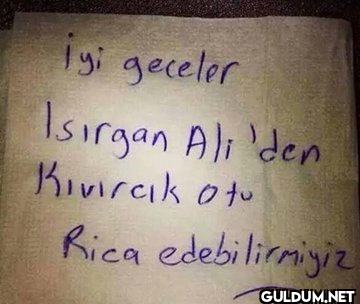 İyi geceler
Isırgan Ali'den
Kıvırcık otu
Rica edebilirmiyiz
GULDUM.NET